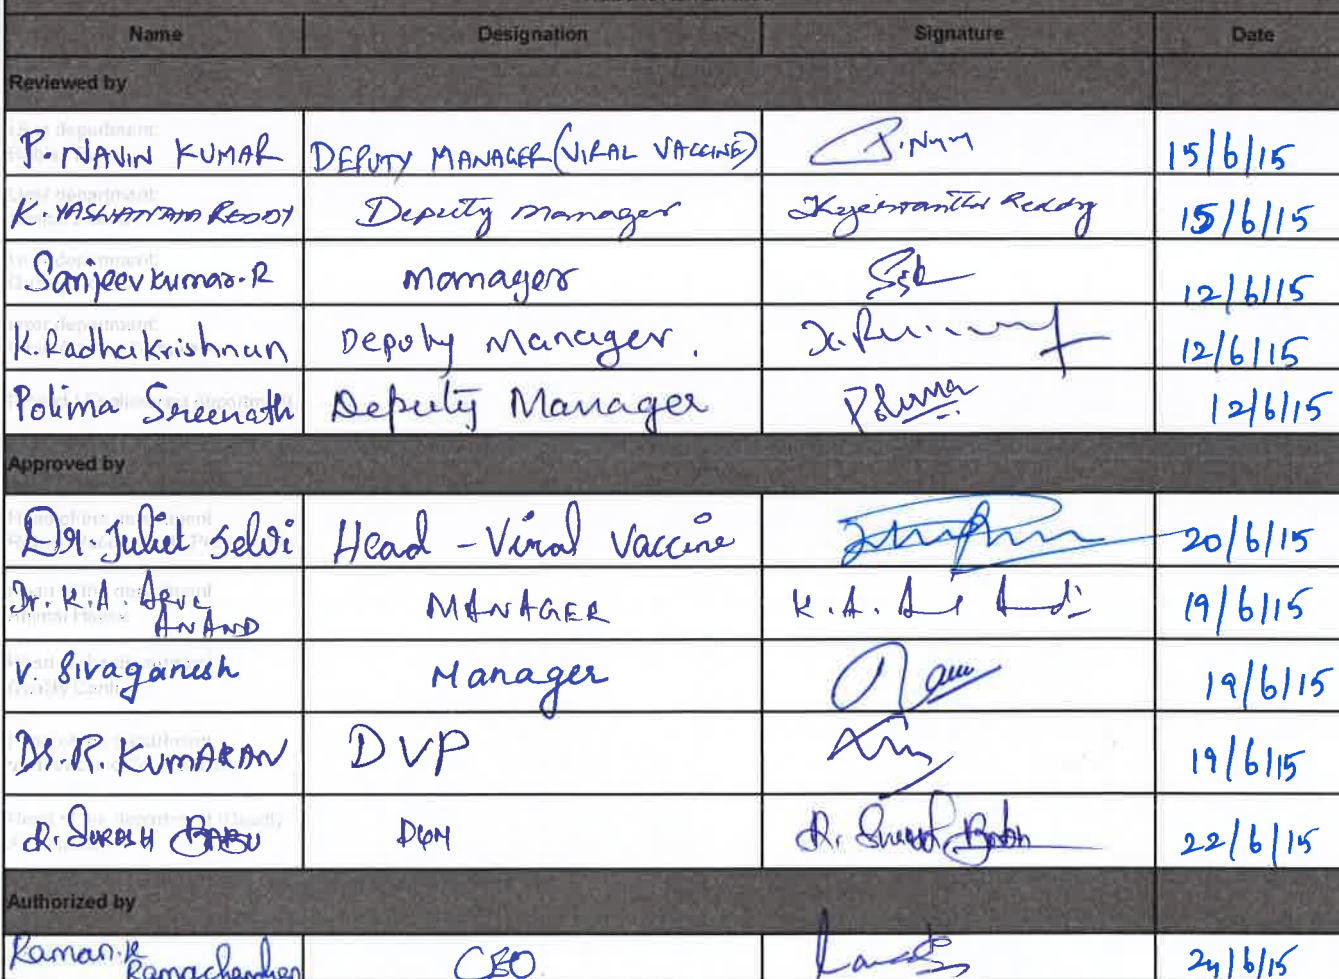 Name Designation Signature Date
Reviewed by
P. NAVIN KUMAR DEPUTY MANAGER (VIRAL VACCINE) 15/6/15
K. YASHWANTHA REDDY Deputy manager Reddy 15/6/15
Sanjeevkumar.R manager 12/6/15
K. Radhakrishnan Deputy Manager. 12/6/15
Polima Sreenath Deputy Manager 12/6/15
Approved by
Dr. Juliet Selvi Head - Viral Vaccine 20/6/15
Dr. K.A. MANAGER K. A. 19/6/15
ANAND
V. Sivaganesh Manager 19/6/15
Dr. R. KUMARAN DVP 19/6/15
R. SURESH BABU DGM R. Suresh Babu 22/6/15
Authorized by
Raman.R CEO 24/6/15